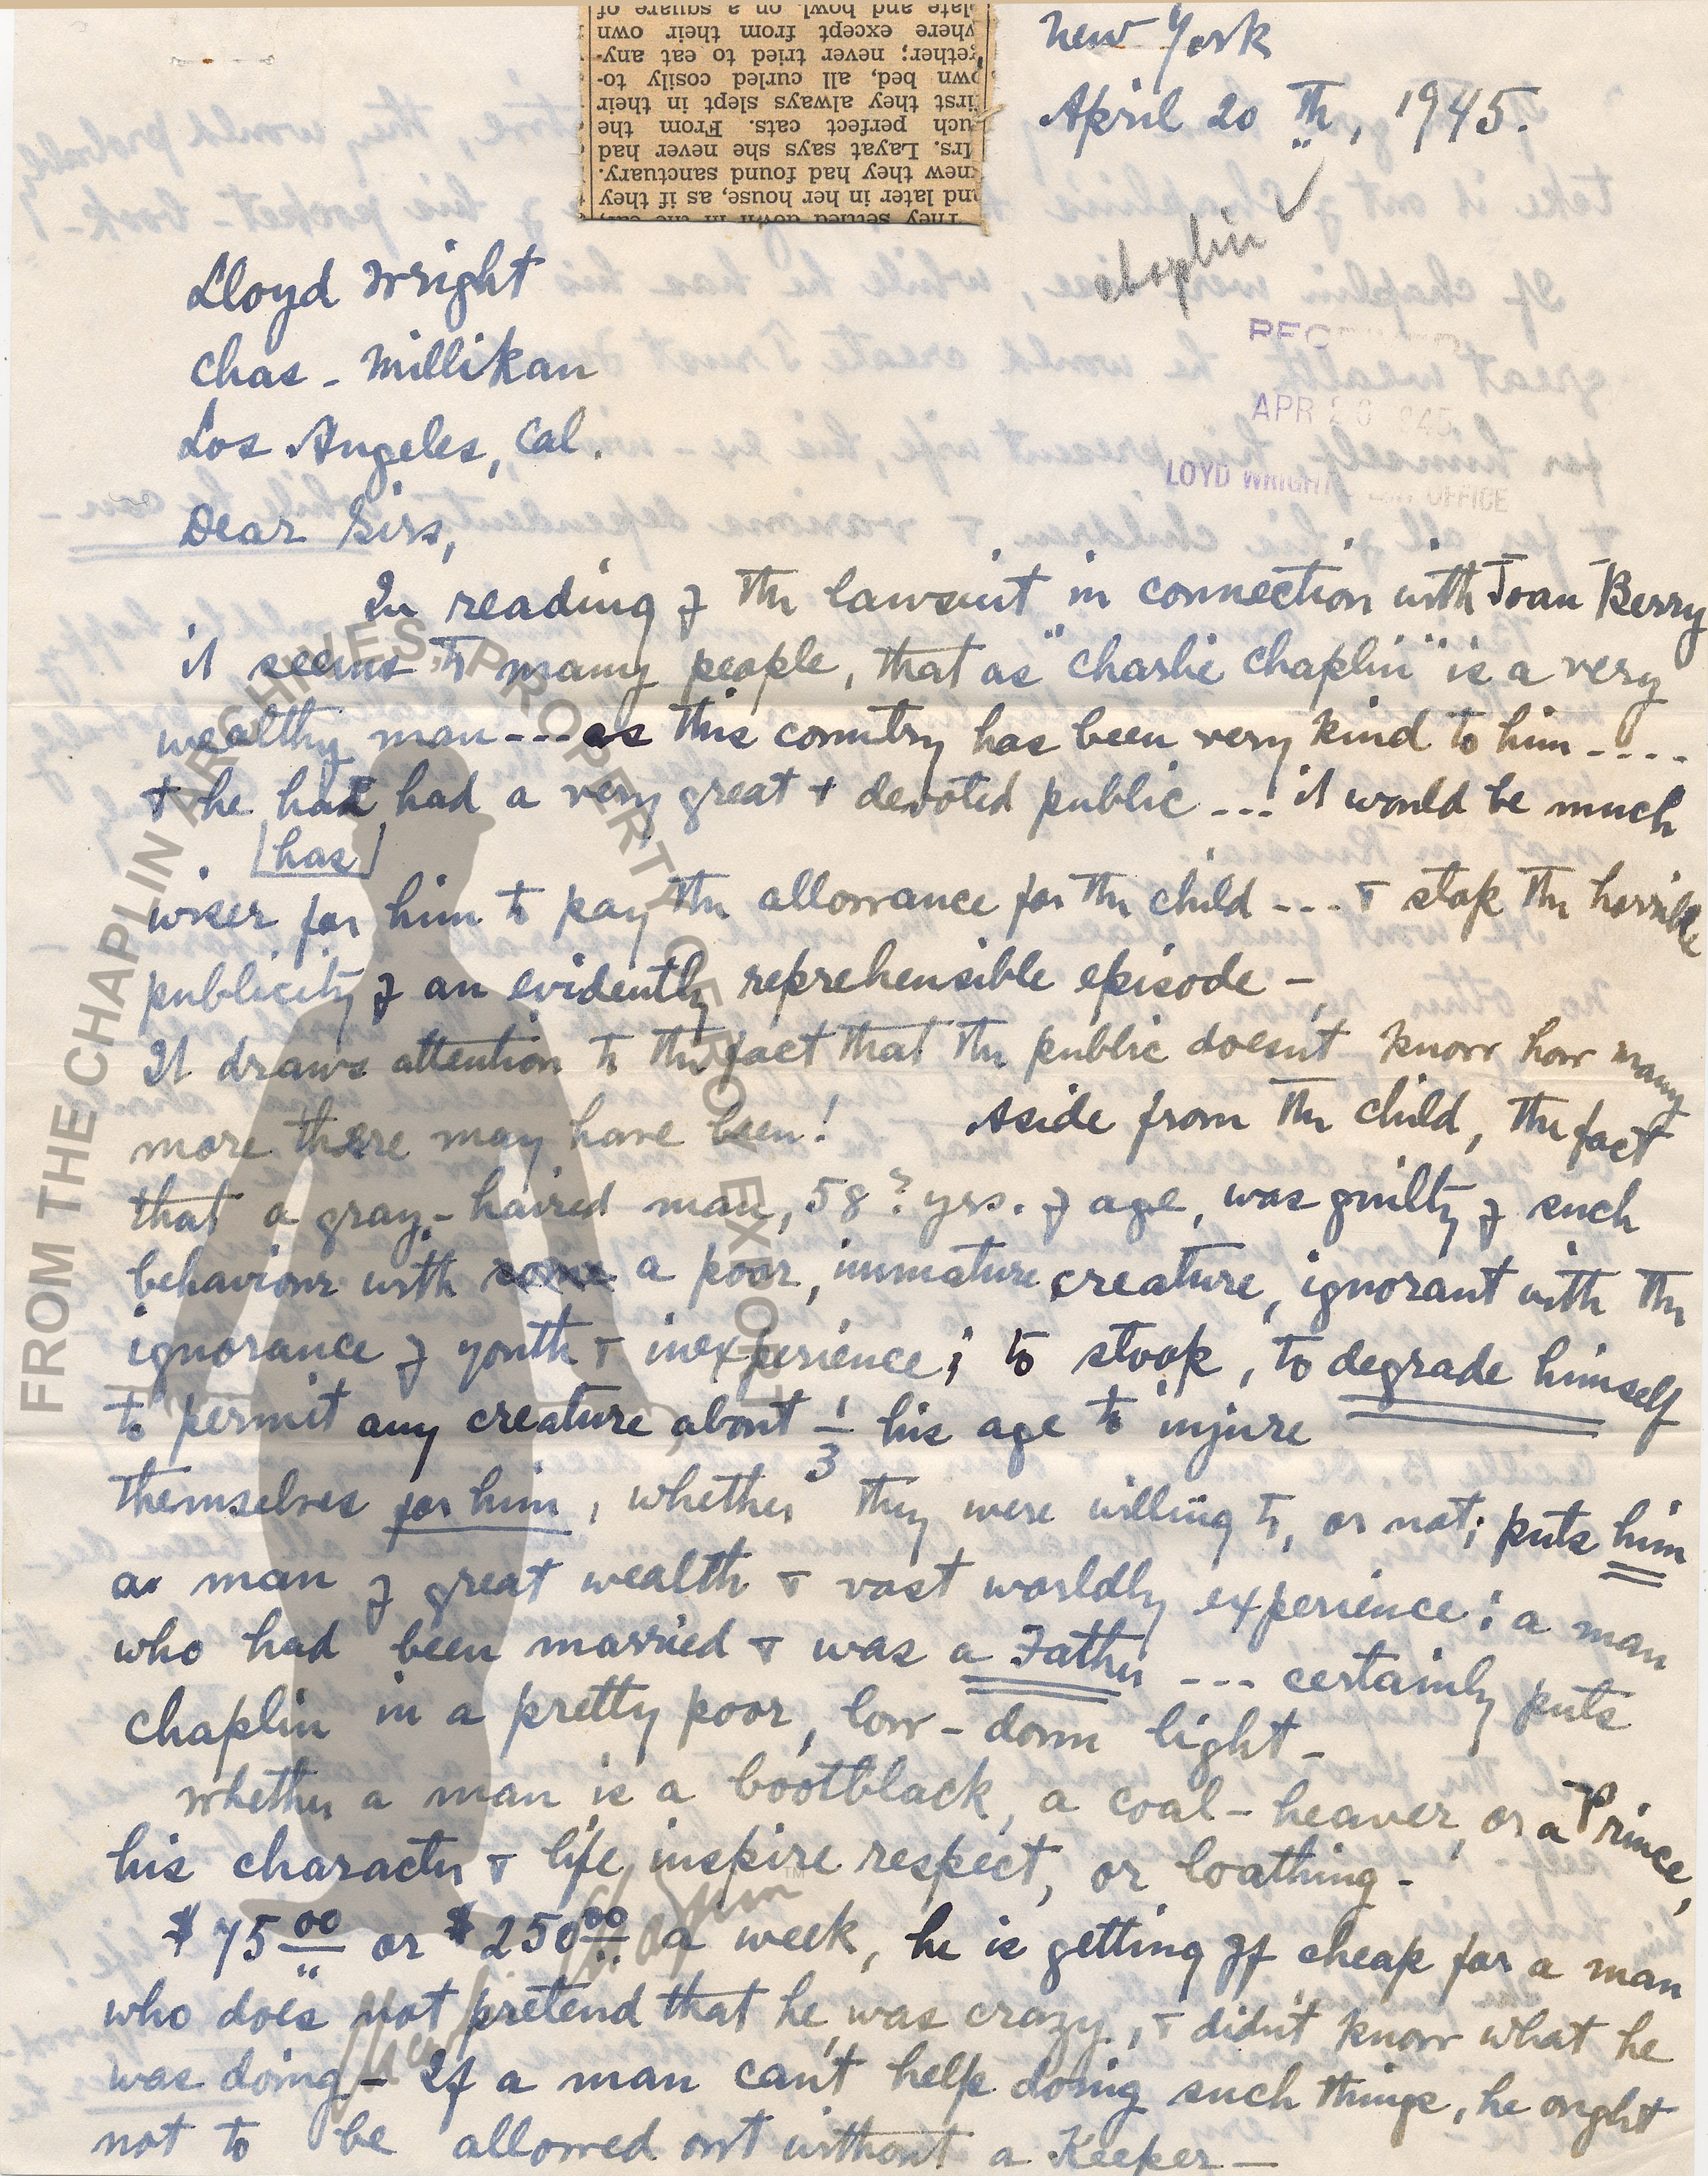 New York
April 20 th, 1945.
chaplin ✓
late and bowl on a square of
where except from their own
gether; never tried to eat any-
own bed, all curled cosily to-
first they always slept in their
such perfect cats. From the
Mrs. Layat says she never had
new they had found sanctuary.
and later in her house, as if they
They settled down in the car,
Lloyd Wright
Chas - Millikan
Los Angeles, Cal.
APR 1945
LOYD WRIGHT LAW OFFICE
Dear Sirs,
In reading of the lawsuit in connection with Joan Berry
it seems to many people, that as "Charlie Chaplin" is a very
wealthy man --- as this country has been very kind to him ----
+ he had had a very great + devoted public --- it would be much
[has]
wiser for him to pay the allowance for the child --- + stop the horrible
publicity of an evidently reprehensible episode -
It draws attention to the fact that the public doesn't know how many
more there may have been! Aside from the child, the fact
that a gray-haired man, 58? yrs. of age, was guilty of such
behaviour with a poor, immature creature, ignorant with the
ignorance of youth + inexperience; to stoop, to degrade himself
to permit any creature about 1/3 his age to injure
themselves for him, whether they were willing to, or not; puts him
a man of great wealth + vast worldly experience: a man
who had been married + was a Father --- certainly puts
Chaplin in a pretty poor, low-down light -
Whether a man is a bootblack, a coal-heaver, or a Prince,
his character + life, inspire respect, or loathing -
$75.00 or $250.00 a week, he is getting off cheap for a man
who does not pretend that he was crazy, + didn't know what he
was doing - If a man can't help doing such things, he ought
not to be allowed out without a Keeper -
FROM THE CHAPLIN ARCHIVES, PROPERTY OF ROY EXPORT